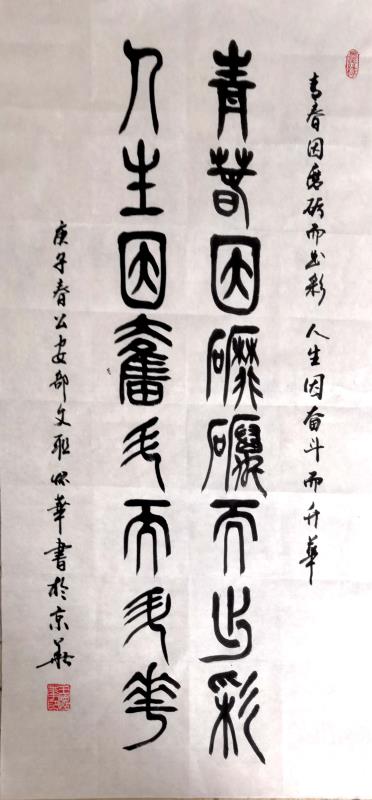 青春因磨砺而出彩 人生因奋斗而升華
青春因磨礪而出彩
人生因奮斗而升華
庚子春公安部文联華書於京華